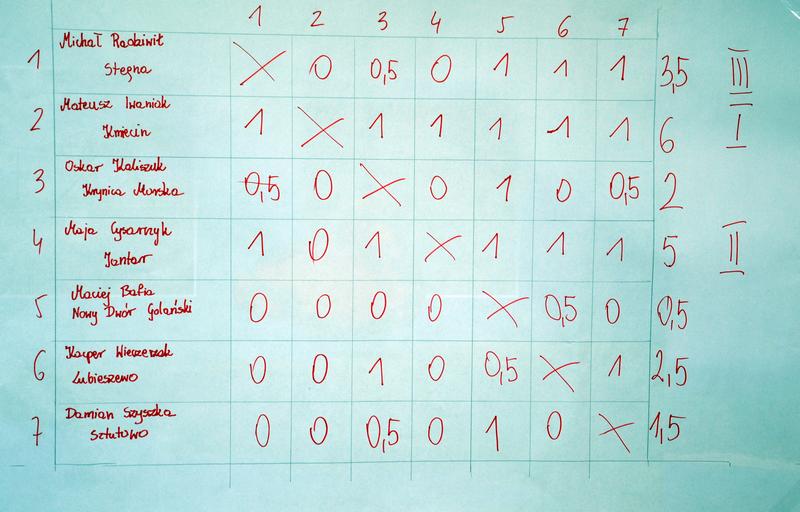 1 2 3 4 5 6 7
1 Michał Radziwił
Stegna X 0 0,5 0 1 1 1 3,5 III
2 Mateusz Iwaniak
Kmiecin 1 X 1 1 1 1 1 6 I
3 Oskar Kaliszuk
Krynica Morska 0,5 0 X 0 1 0 0,5 2
4 Maja Cysarczyk
Jantar 1 0 1 X 1 1 1 5 II
5 Maciej Bafia
Nowy Dwór Gdański 0 0 0 0 X 0,5 0 0,5
6 Kacper Wieczerzak
Lubieszewo 0 0 1 0 0,5 X 1 2,5
7 Damian Szyszka
Sztutowo 0 0 0,5 0 1 0 X 1,5